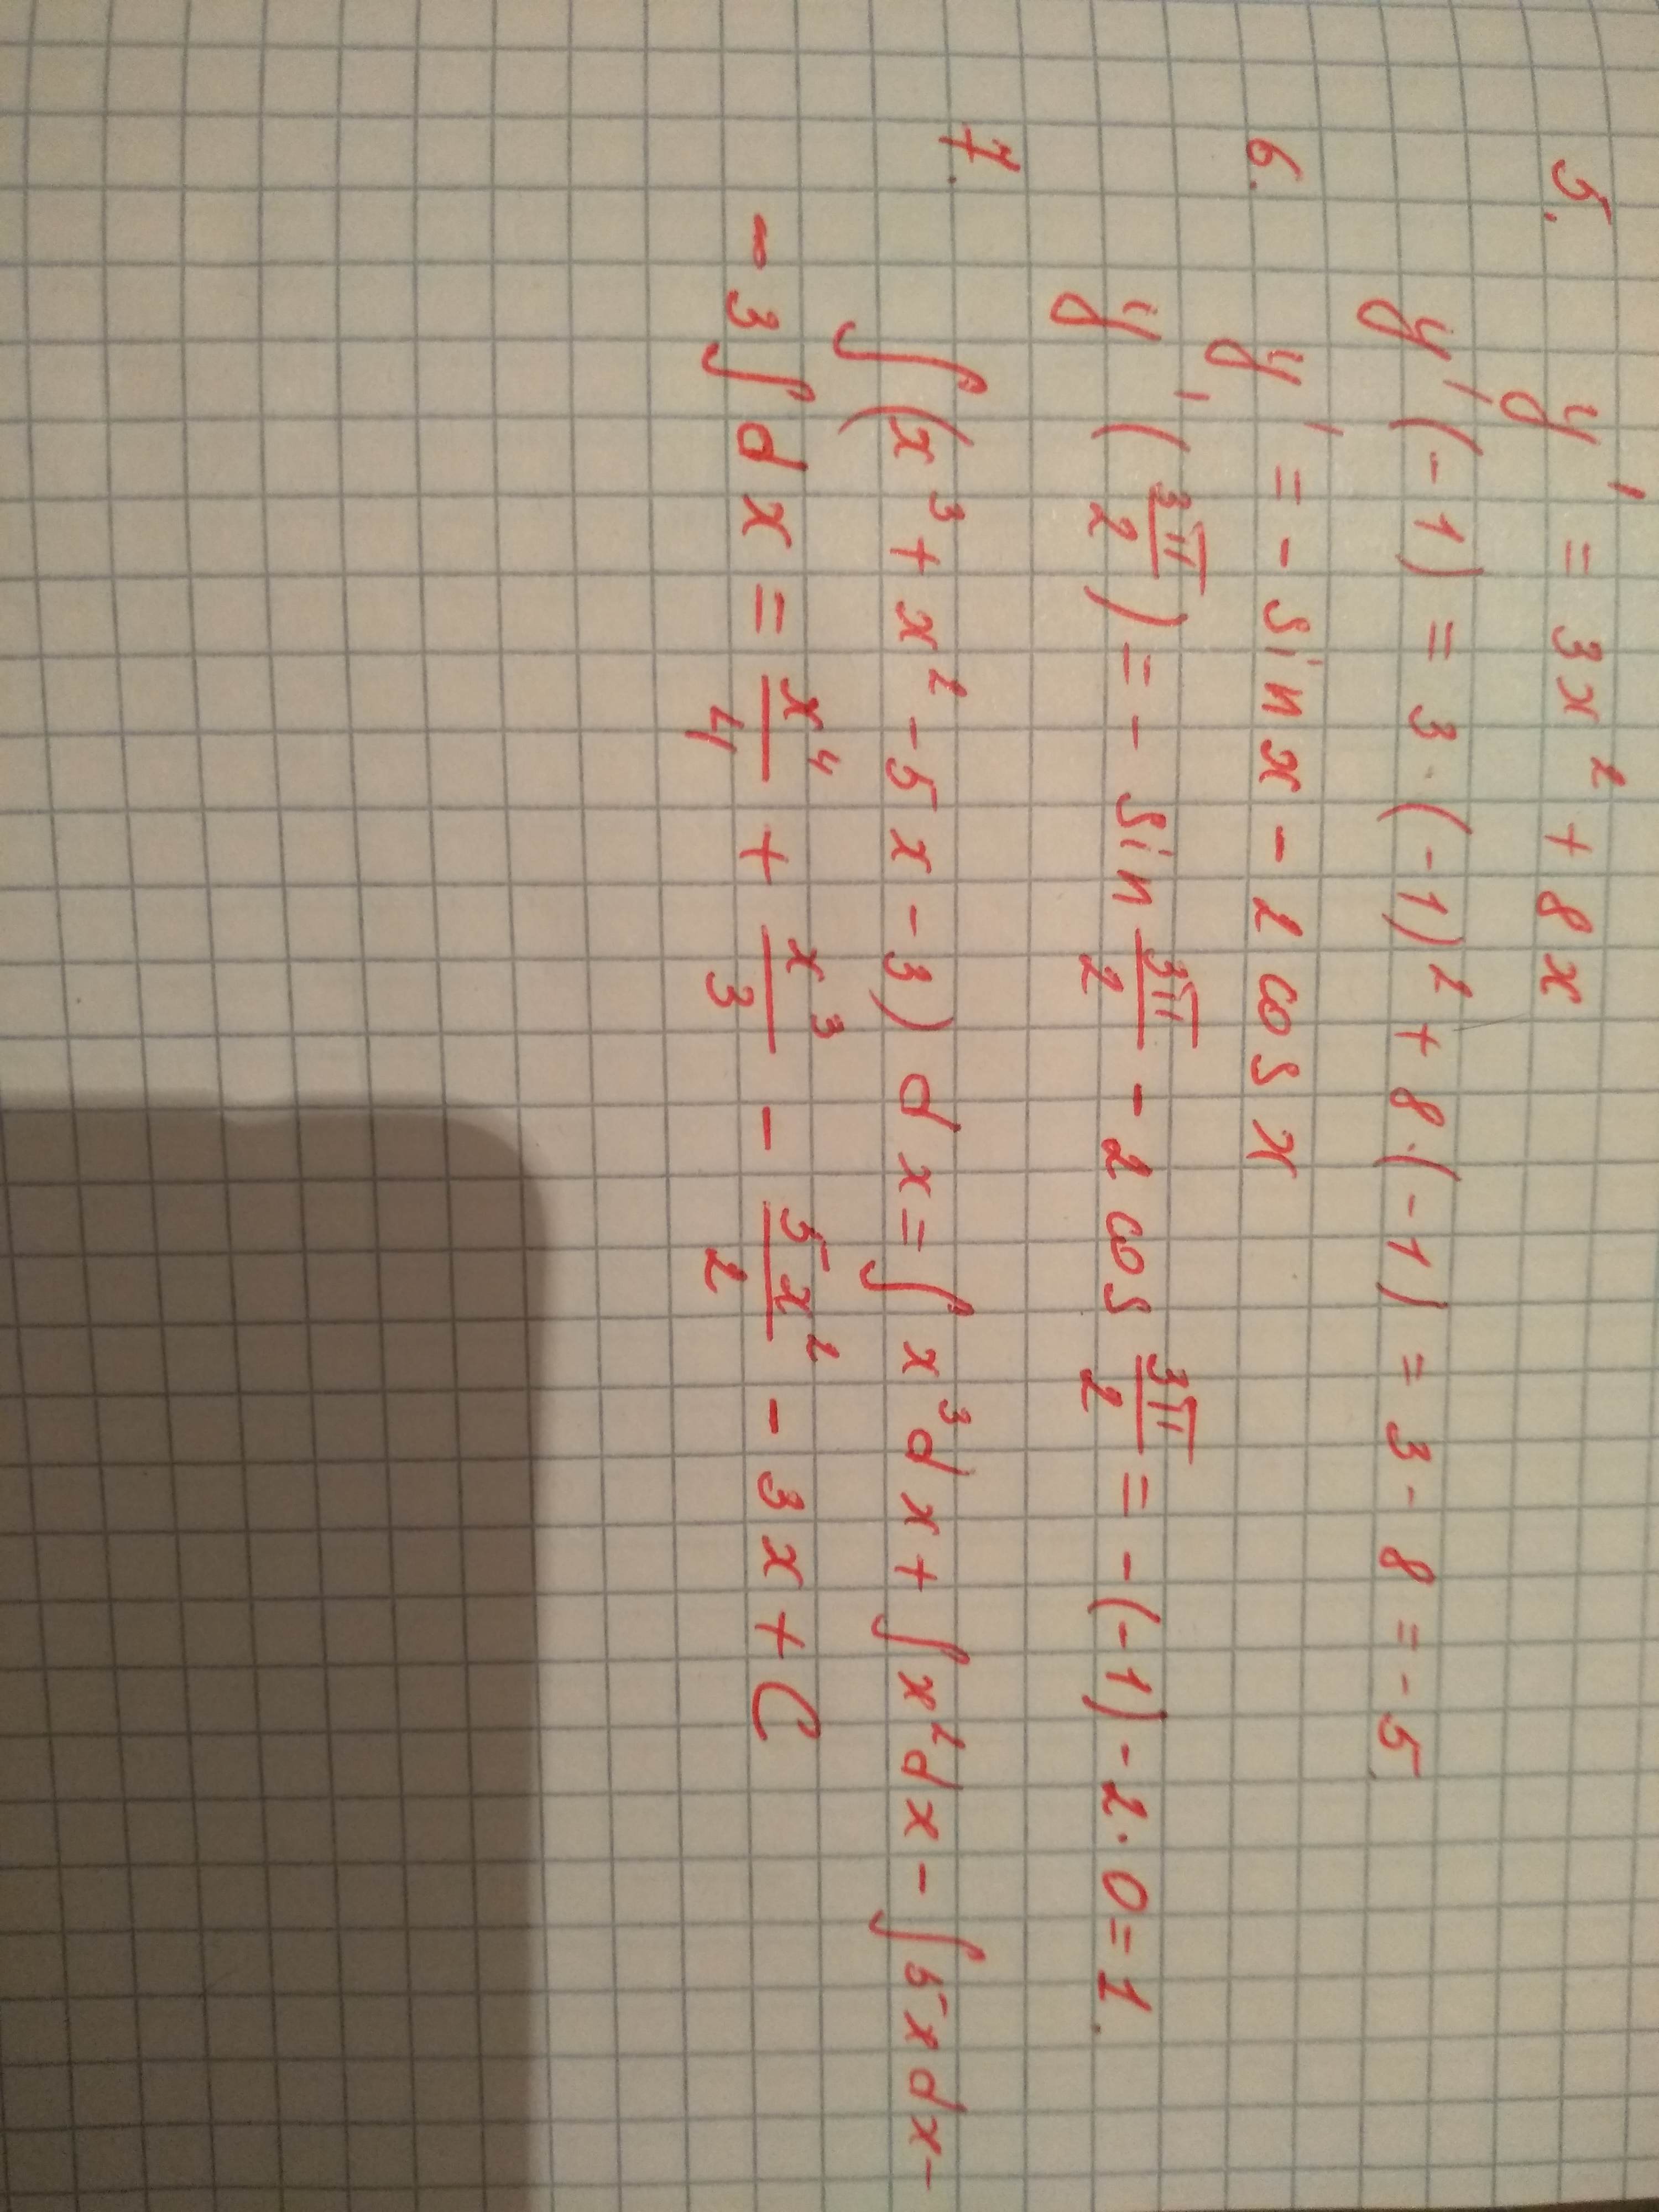 5. y' = 3x² + 8x
y'(-1) = 3·(-1)² + 8·(-1) = 3 - 8 = -5.
6. y' = - sin x - 2 cos x
y'(3π/2) = - sin 3π/2 - 2 cos 3π/2 = -(-1) - 2·0 = 1.
7. ∫(x³ + x² - 5x - 3) dx = ∫x³dx + ∫x²dx - ∫5xdx -
- 3∫dx = x⁴/4 + x³/3 - 5x²/2 - 3x + C